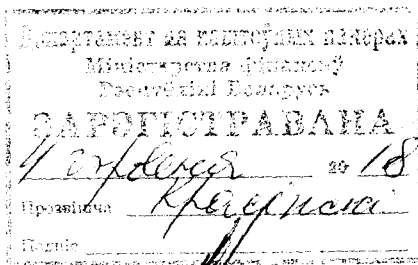 Дэпартамент па каштоўных паперах
Міністэрства фінансаў
Рэспублікі Беларусь
ЗАРЭГІСТРАВАНА
4 чэрвеня 2018
Прозвішча
Подпіс